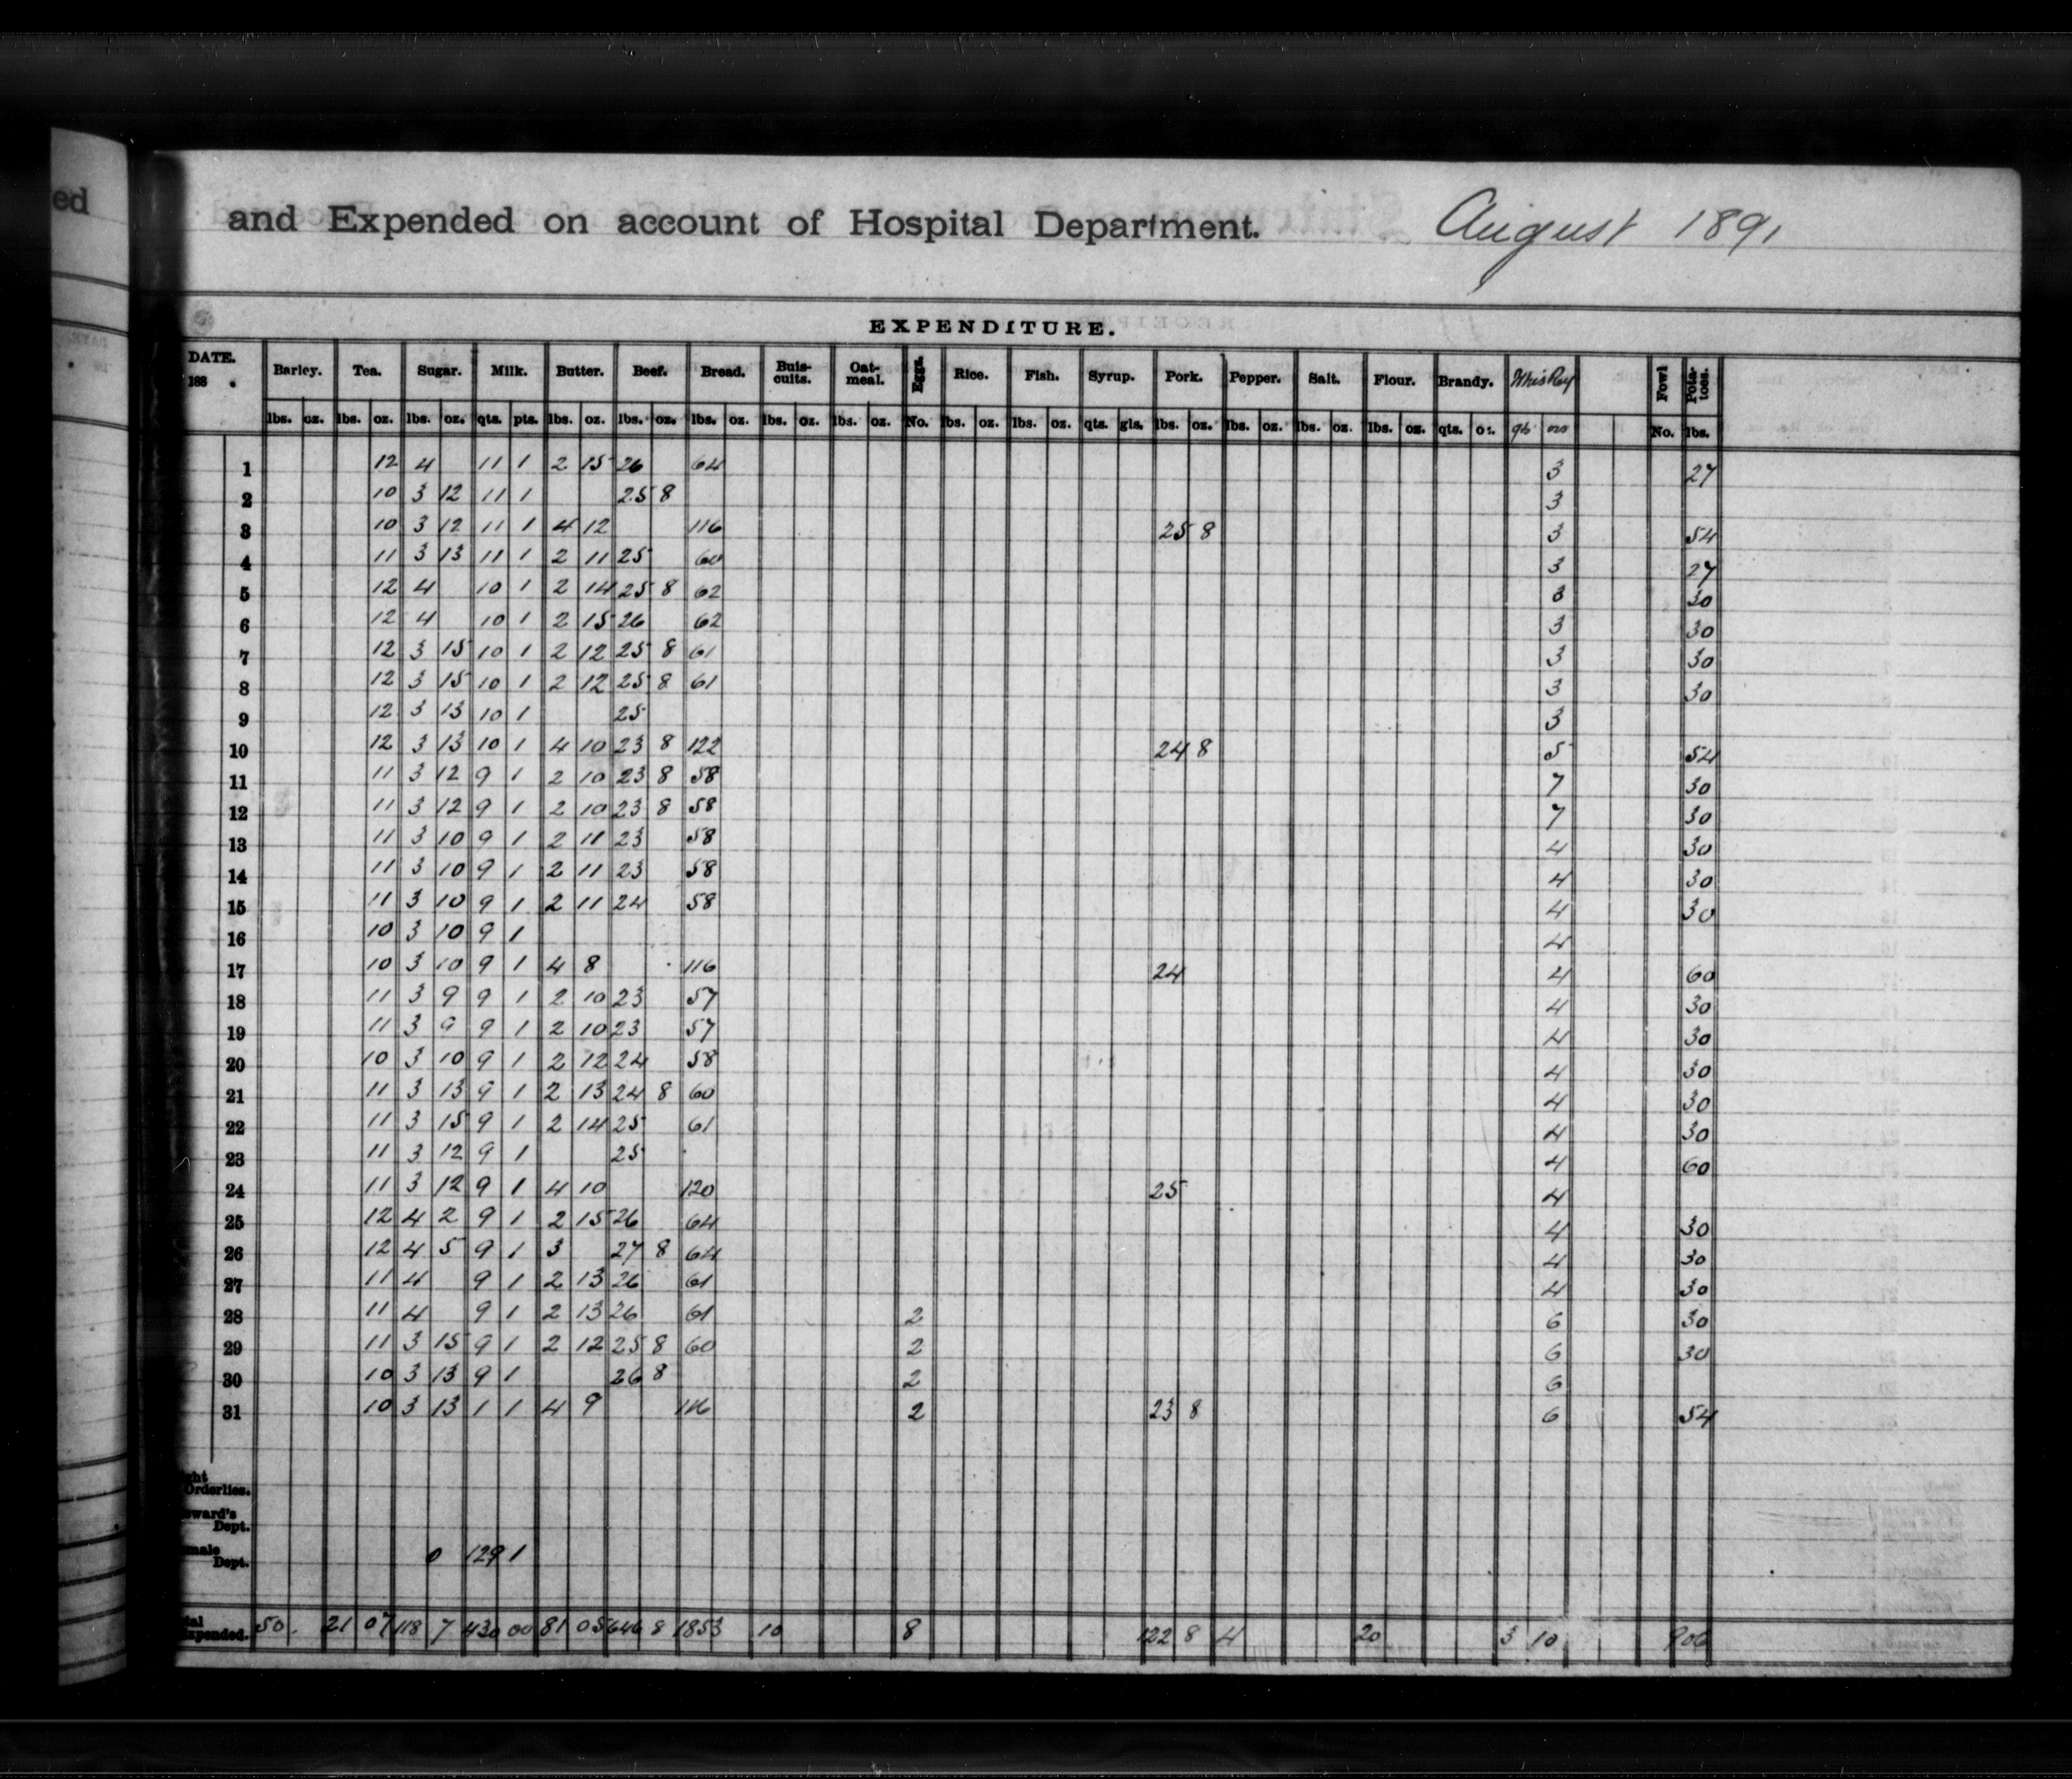 ed
and Expended on account of Hospital Department. August 1891
EXPENDITURE.
DATE. 188 . Barley. Tea. Sugar. Milk. Butter. Beef. Bread. Buis-cuits. Oat-meal. Eggs. Rice. Fish. Syrup. Pork. Pepper. Salt. Flour. Brandy. Whiskey Fowl Pota-toes.
lbs. oz. lbs. oz. lbs. oz. qts. pts. lbs. oz. lbs. oz. lbs. oz. lbs. oz. lbs. oz. No. lbs. oz. lbs. oz. qts. gls. lbs. oz. lbs. oz. lbs. oz. lbs. oz. qts. oz. No. lbs.
1 12 4 11 1 2 15 26 64 3 27
2 10 3 12 11 1 25 8 3
3 10 3 12 11 1 4 12 116 25 8 3 54
4 11 3 13 11 1 2 11 25 60 3 27
5 12 4 10 1 2 14 25 8 62 3 30
6 12 4 10 1 2 15 26 62 3 30
7 12 3 15 10 1 2 12 25 8 61 3 30
8 12 3 15 10 1 2 12 25 8 61 3 30
9 12 3 13 10 1 25 3
10 12 3 13 10 1 4 10 23 8 122 24 8 5 54
11 11 3 12 9 1 2 10 23 8 58 7 30
12 11 3 12 9 1 2 10 23 8 58 7 30
13 11 3 10 9 1 2 11 23 58 4 30
14 11 3 10 9 1 2 11 23 58 4 30
15 11 3 10 9 1 2 11 24 58 4 30
16 10 3 10 9 1 4
17 10 3 10 9 1 4 8 116 24 4 60
18 11 3 9 9 1 2 10 23 57 4 30
19 11 3 9 9 1 2 10 23 57 4 30
20 10 3 10 9 1 2 12 24 58 4 30
21 11 3 13 9 1 2 13 24 8 60 4 30
22 11 3 15 9 1 2 14 25 61 4 30
23 11 3 12 9 1 25 4 60
24 11 3 12 9 1 4 10 120 25 4
25 12 4 2 9 1 2 15 26 64 4 30
26 12 4 5 9 1 3 27 8 64 4 30
27 11 4 9 1 2 13 26 61 4 30
28 11 4 9 1 2 13 26 61 2 6 30
29 11 3 15 9 1 2 12 25 8 60 2 6 30
30 10 3 13 9 1 26 8 2 6
31 10 3 13 1 1 4 9 116 2 23 8 6 54
ght
Orderlies.
eward's
Dept.
male
Dept. 0 129 1
tal
xpended. 50. 21 07 118 7 430 00 81 05 646 8 1853 10 8 122 8 4 20 3 10 906